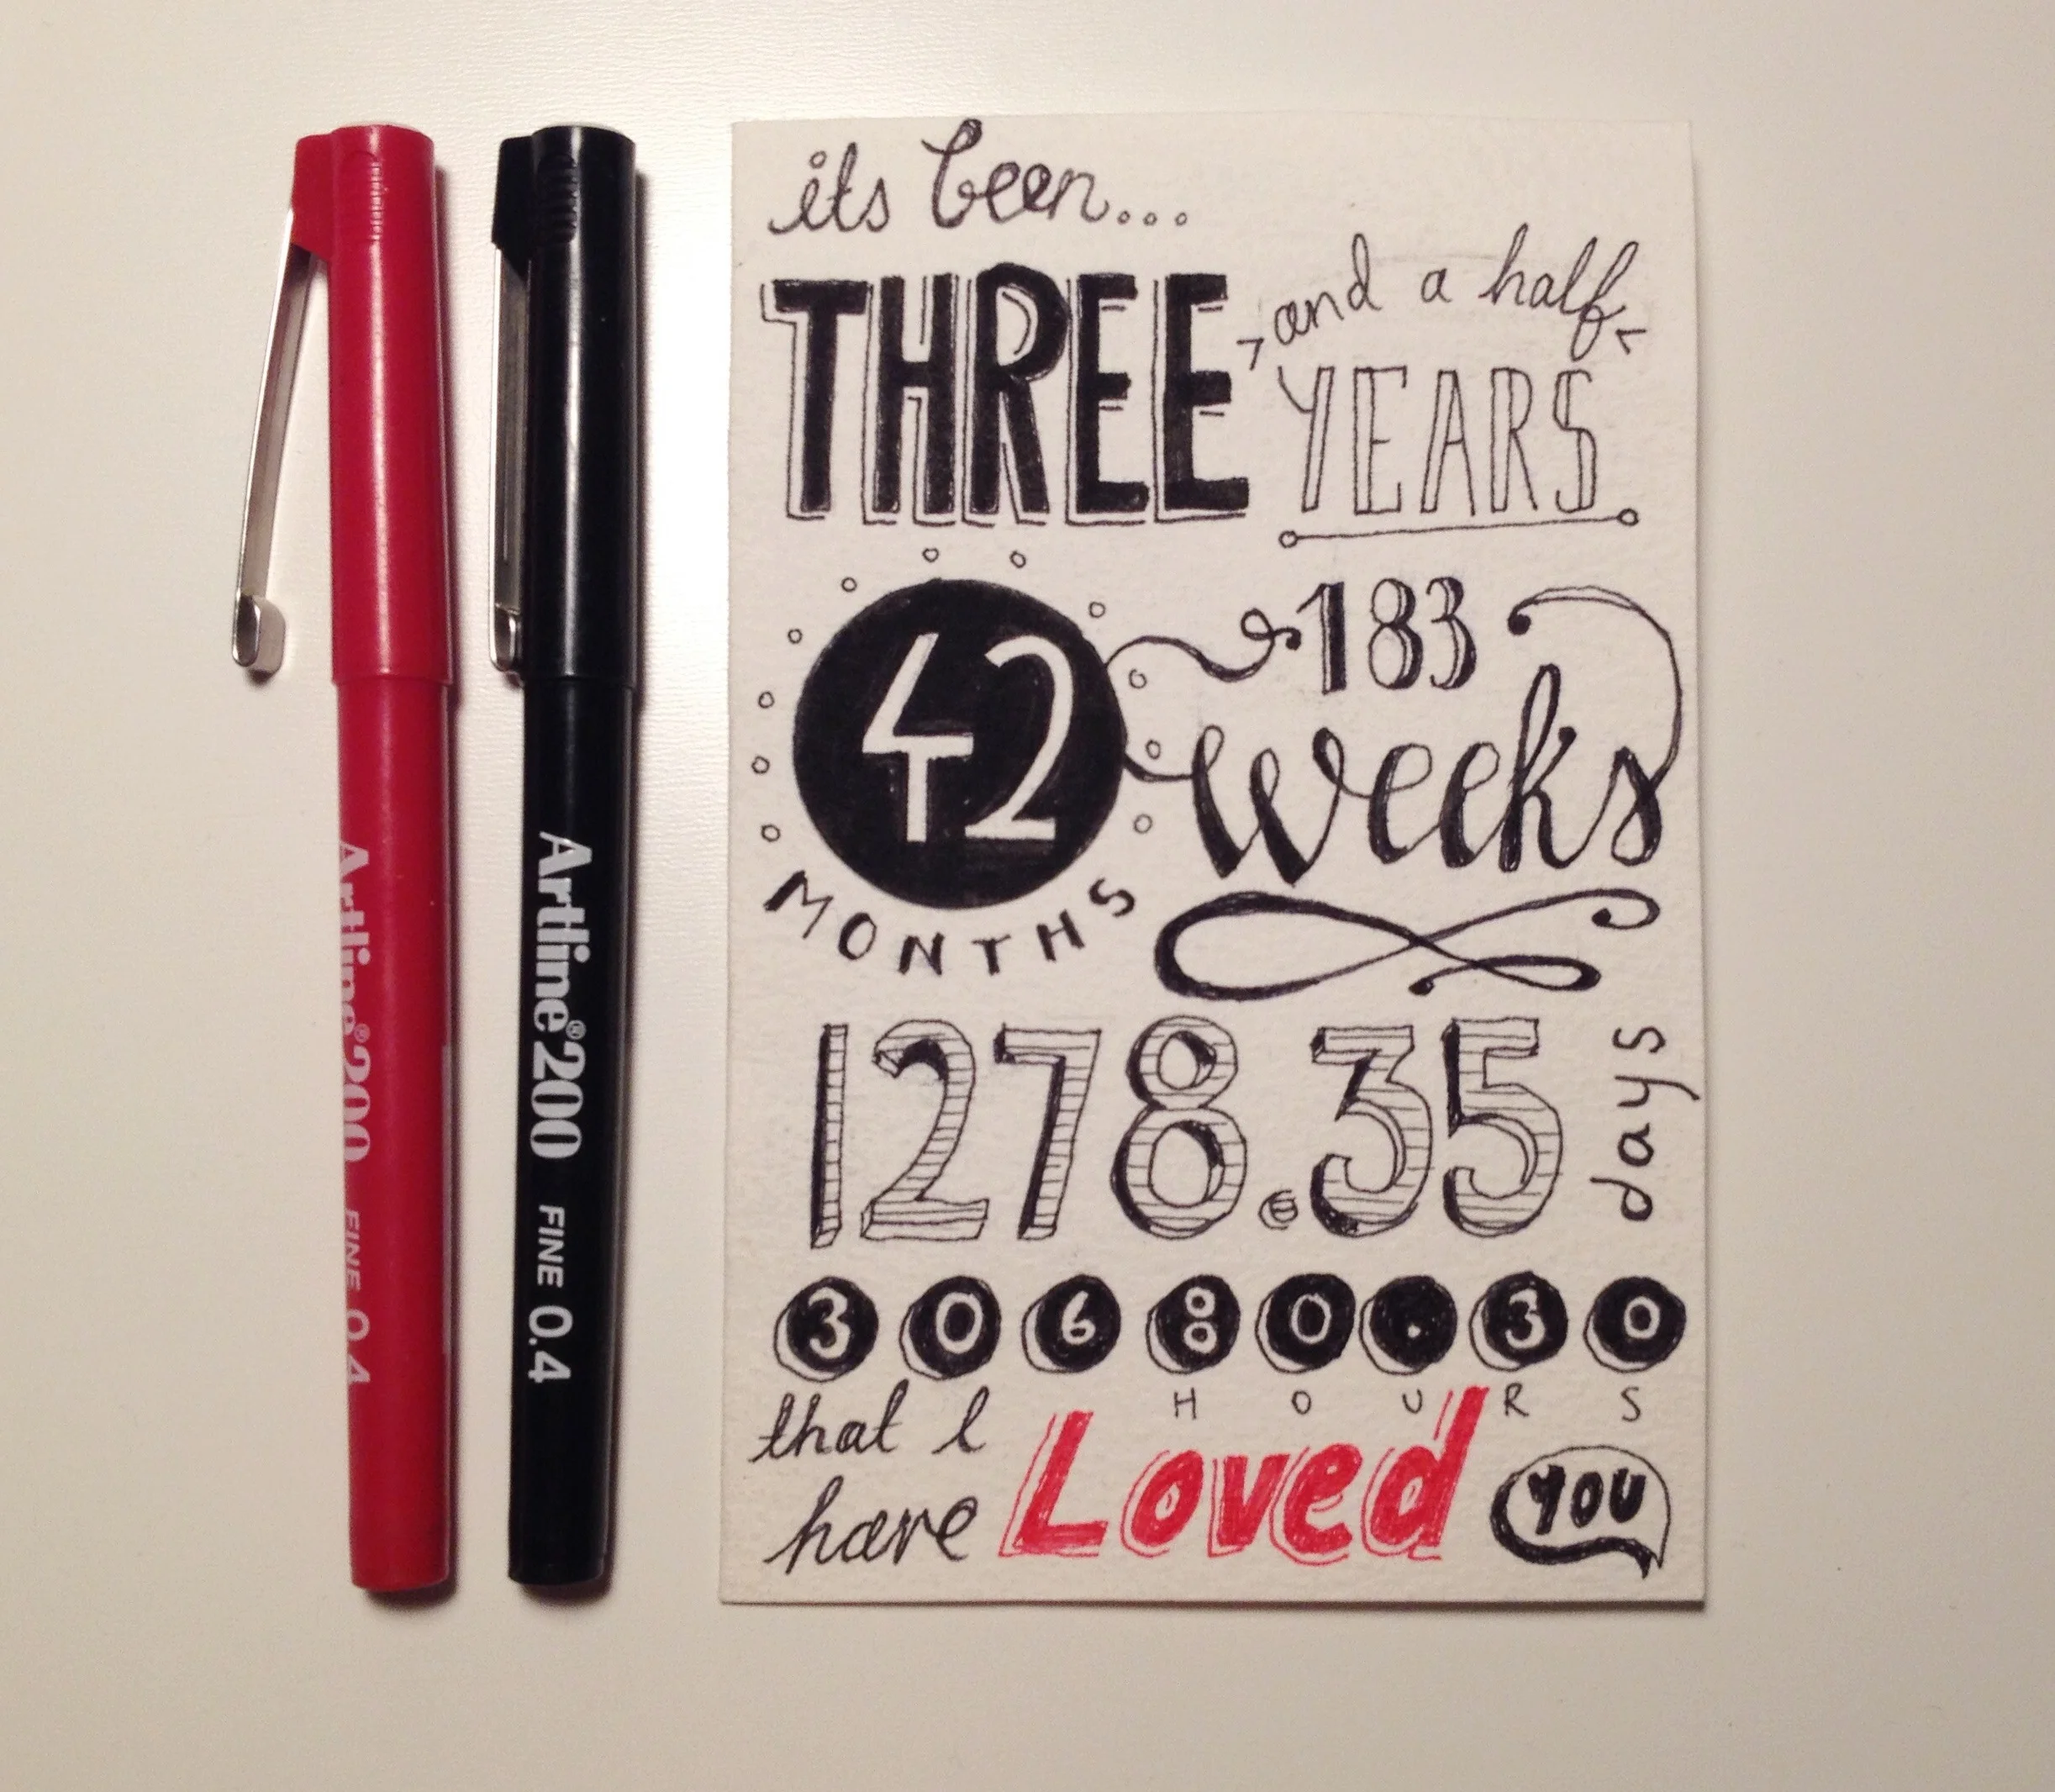 Artline®200 FINE 0.4
Artline®200 FINE 0.4
its been...
THREE and a half
YEARS
42
MONTHS
183
weeks
1278.35 days
30680.30
HOURS
that I
have Loved YOU